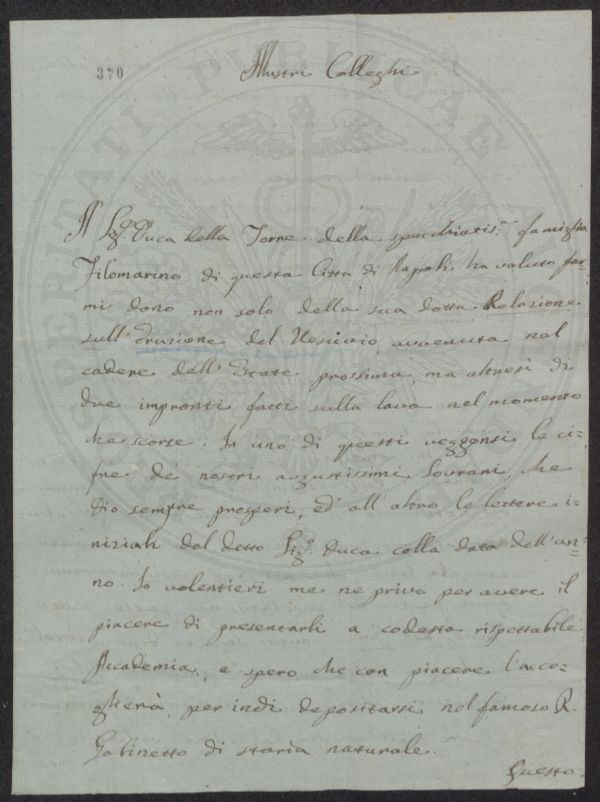 370
Illustri Colleghi
Il Sigr. Duca della Torre della specchiatis.ma famiglia
Filomarino di questa Città di Napoli ha voluto far=
mi dono non solo della sua dotta Relazione
sull'eruzione del Vesuvio, avvenuta nel
cadere dell'Estate prossima, ma altresì di
due impronti fatti sulla lava nel momento
che scorse. In uno di questi veggonsi le ci=
fre de' nostri augustissimi Sovrani, che
Dio sempre prosperi, ed all'altro le lettere i=
niziali del detto Sigr. Duca colla data dell'an=
no. Io volentieri me ne privo per avere il
piacere di presentarli a codesta rispettabile
Accademia, e spero che con piacere l'acco=
glierà, per indi depositarsi nel famoso R.
Gabinetto di storia naturale.
Questo